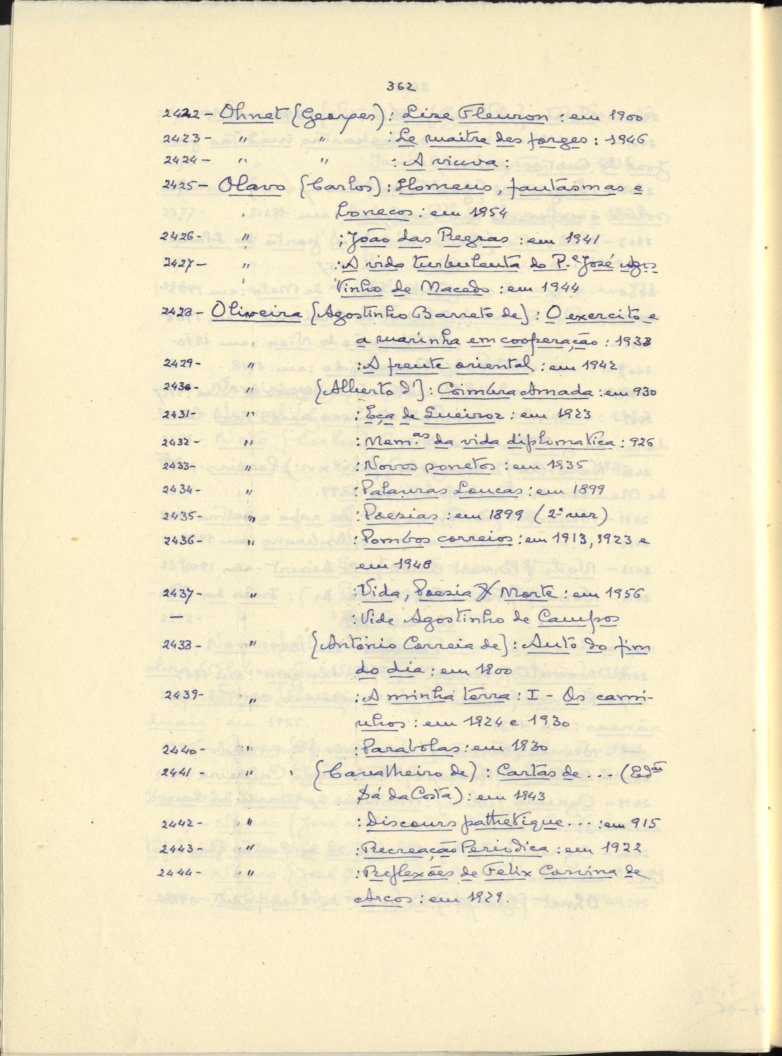 362
2422- Ohnet (Georges): Lise Fleuron: em 1900
2423- " " : Le maitre des forges: 1946
2424- " " : A viuva:
2425- Olavo (Carlos): Homens, fantasmas e
bonecos: em 1954
2426- " : João das Regras: em 1941
2427- " : A vida turbulenta do P.e José Agos
tinho de Macedo: em 1944
2428- Oliveira (Agostinho Barreto de): O exercito e
a marinha em cooperação: 1938
2429- " : A frente oriental: em 1942
2430- " (Alberto d'): Coimbra Amada: em 930
2431- " : Eça de Queiroz: em 1923
2432- " : Mem.as da vida diplomatica: 926
2433- " : Novos sonetos: em 1935
2434- " : Palavras Loucas: em 1899
2435- " : Poesias: em 1899 (2ª ver)
2436- " : Pombos correios: em 1913, 1923 e
em 1948
2437- " : Vida, Poesia & Morte: em 1956
— : Vide Agostinho de Campos
2438- " (António Correia de): Auto do fim
do dia: em 1800
2439- " : A minha terra: I - Os cami-
nhos: em 1924 e 1930
2440- " : Parabolas: em 1830
2441- " (Cavalheiro de): Cartas de... (Ed.
Sá da Costa): em 1943
2442- " : Discours pathétique...: em 915
2443- " : Recreação Periodica: em 1922
2444- " : Reflexões de Felix Corvina de
Arcos: em 1929.